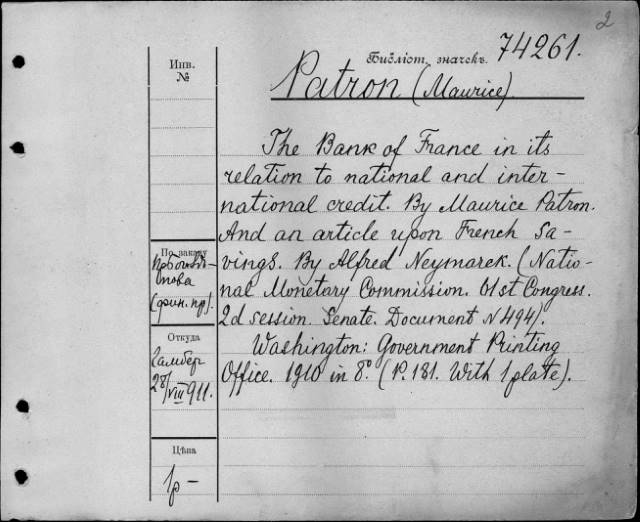 2
Библіот. значекъ. 74261.
Инв.
№
Patron (Maurice)
The Bank of France in its
relation to national and inter-
national credit. By Maurice Patron.
And an article upon French Sa-
vings. By Alfred Neymarek. (Natio-
nal Monetary Commission. 61st Congress.
2d session. Senate. Document N 494).
Washington: Government Printing
Office. 1910 in 8º. (P. 181. With 1 plate).
По заказу
(фин. пр).
Откуда
28/VIII 911.
Цѣна
1р –